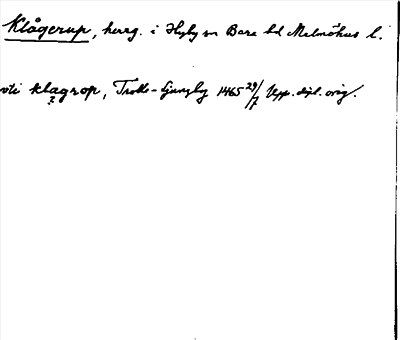 Klågerup, herrg. i Hyby sn Bara hd Malmöhus l.
klagrop, Trolle-Ljungby 1465 29/7 Upps. dipl. orig.